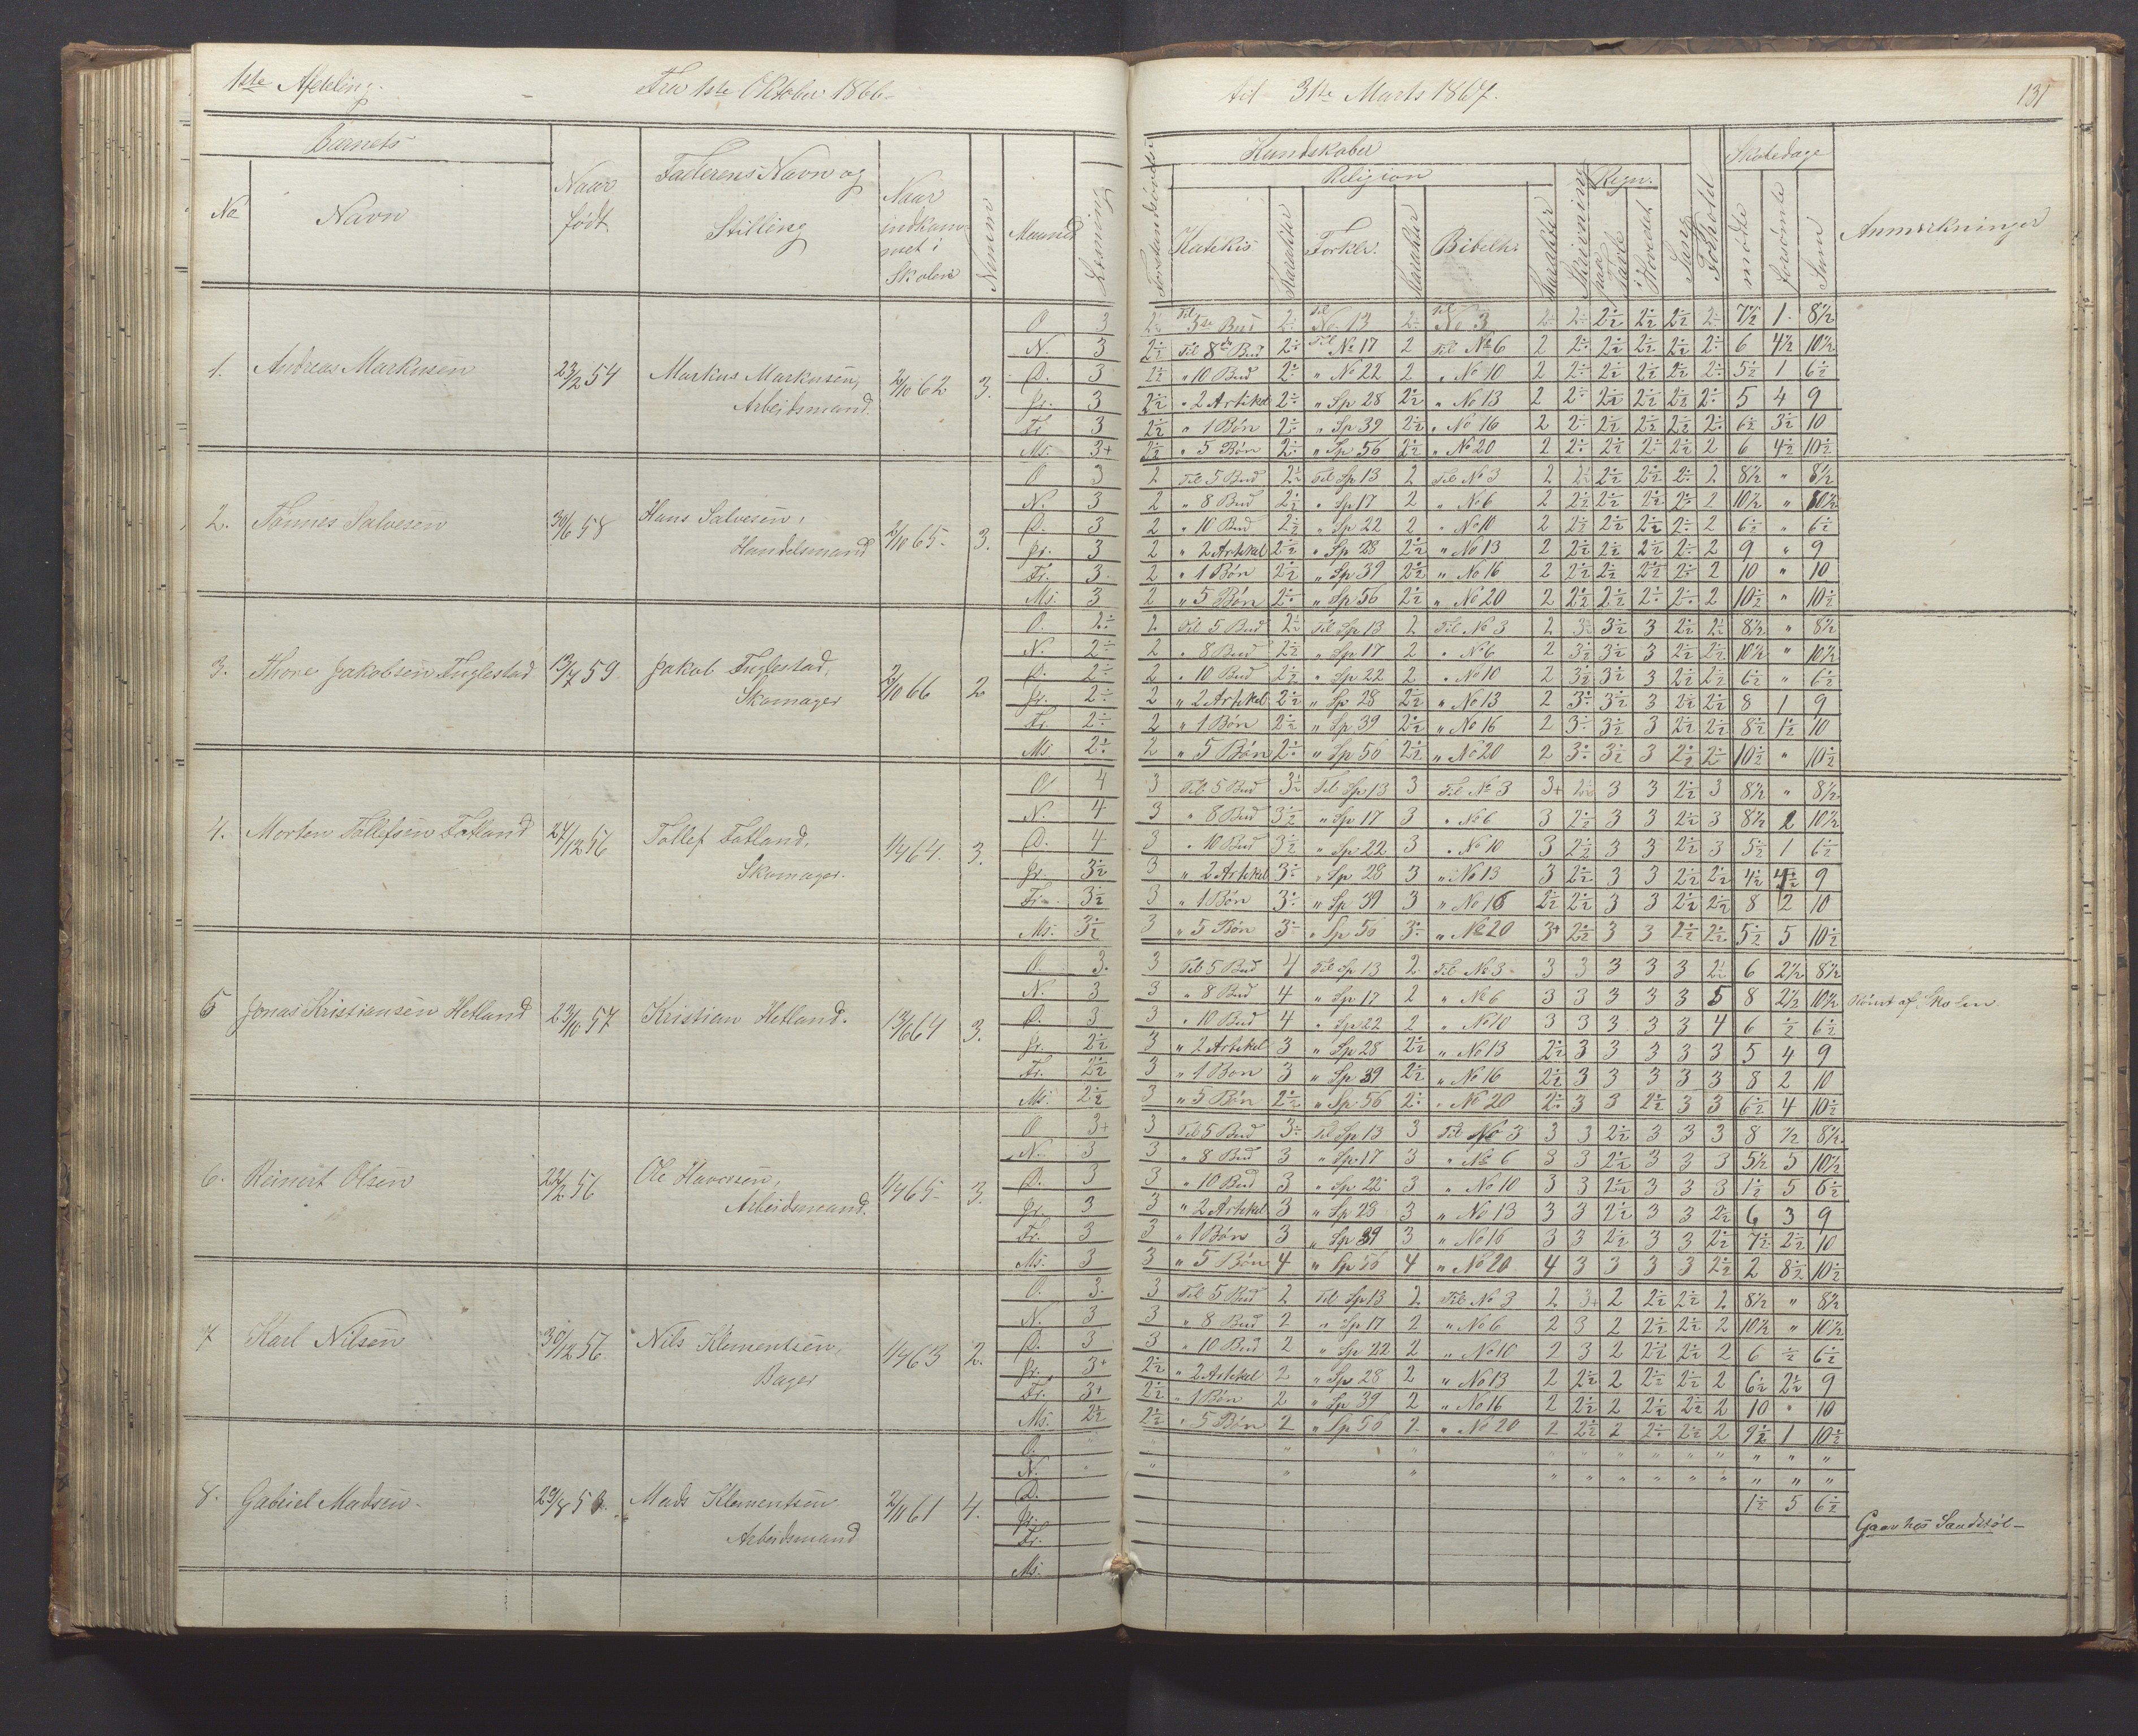 1ste Afdeling.
Fra 1ste Oktober 1866-
til 31te Marts 1867.
131
Barnets
No
Navn
Naar født
Faderens Navn og Stilling
Naar indkommet i Skolen
Numm
Maaned
Læsning
Forstandsøvelse
Kundskaber
Religion
Katekis
Karakter
Forkl.
Karakter
Bibelh.
Karakter
Skrivning
Regn.
paa Tavle
Hovedet
Sang
Forhold
Skoledage
mødte
forsømte
Sum
Anmærkninger
1. Andreas Markusen 23/2 54 Markus Markusen, Arbeidsmand. 2/10 62 3.
O 3 2½ Til 5te Bud 2÷ Til No 13 2÷ Til No 3 2÷ 2÷ 2½ 2½ 2½ 2÷ 7½ 1 8½
N. 3 2½ Til 8de Bud 2÷ Til No 17 2 Til No 6 2 2÷ 2½ 2½ 2½ 2÷ 6 4½ 10½
D. 3 2½ " 10 Bud 2÷ " No 22 2 " No 10 2 2÷ 2½ 2½ 2½ 2÷ 5½ 1 6½
Jr. 3 2½ " 2 Artikel 2÷ " Sp 28 2½ " No 13 2 2÷ 2½ 2½ 2½ 2÷ 5 4 9
Fr 3 2½ " 1 Bøn 2÷ " Sp 39 2½ " No 16 2 2÷ 2½ 2½ 2½ 2÷ 6½ 3½ 10
Ms. 3+ 2½ " 5 Bøn 2÷ " Sp 56 2½ " No 20 2 2÷ 2½ 2÷ 2½ 2 6 4½ 10½
2. Tønnes Salvesen 30/6 58 Hans Salvesen, Handelsmand 2/10 65- 3.
O 3 2 Til 5 Bud 2½ Til Sp 13 2 Til No 3 2 2½ 2½ 2½ 2÷ 2 8½ " 8½
N. 3 2 " 8 Bud 2½ " Sp 17 2 " No 6 2 2½ 2½ 2½ 2÷ 2 10½ " 10½
D. 3 2 " 10 Bud 2½ " Sp 22 2 " No 10 2 2½ 2½ 2½ 2÷ 2 6½ " 6½
Jr. 3 2 " 2 Artikel 2½ " Sp 28 2½ " No 13 2 2½ 2½ 2½ 2÷ 2 9 " 9
Fr. 3 2 " 1 Bøn 2½ " Sp 39 2½ " No 16 2 2½ 2½ 2½ 2÷ 2 10 " 10
Ms. 3 2 " 5 Bøn 2÷ " Sp 56 2½ " No 20 2 2½ 2½ 2÷ 2÷ 2 10½ " 10½
3. Thore Jakobsen Fuglestad 13/7 59. Jakob Fuglestad, Skomager 2/10 66 2
O. 2÷ 2 Til 5 Bud 2½ Til Sp 13 2 Til No 3 2 3½ 3½ 3 2½ 2½ 8½ " 8½
N. 2÷ 2 " 8 Bud 2½ " Sp 17 2 " No 6 2 3½ 3½ 3 2½ 2½ 10½ " 10½
D. 2÷ 2 " 10 Bud 2½ " Sp 22 2 " No 10 2 3½ 3½ 3 2½ 2½ 6½ " 6½
Jr. 2÷ 2 " 2 Artikel 2½ " Sp 28 2½ " No 13 2 3÷ 3½ 3 2½ 2½ 8 1 9
Fr. 2÷ 2 " 1 Bøn 2½ " Sp 39 2½ " No 16 2 3÷ 3½ 3 2½ 2½ 8½ 1½ 10
Ms. 2÷ 2 " 5 Bøn 2÷ " Sp 56 2½ " No 20 2 3÷ 3½ 3 2½ 2÷ 10½ " 10½
4. Morten Tollefsen Fotland 24/12 56 Tollef Fotland, Skomager. 1/4 64. 3.
O 4 3 Til 5 Bud 3½ Til Sp 13 3 Til No 3 3+ 2½ 3 3 2½ 3 8½ " 8½
N. 4 3 " 8 Bud 3½ " Sp 17 3 " No 6 3 2½ 3 3 2½ 3 8½ 2 10½
D. 4 3 " 10 Bud 3½ " Sp 22 3 " No 10 3 2½ 3 3 2½ 3 5½ 1 6½
Jr. 3½ 3 " 2 Artikel 3÷ " Sp 28 3 " No 13 3 2½ 3 3 2½ 2½ 4½ 4½ 9
Fr. 3½ 3 " 1 Bøn 3÷ " Sp 39 3 " No 16 2½ 2½ 3 3 2½ 2½ 8 2 10
Ms. 3½ 3 " 5 Bøn 3÷ " Sp 56 3÷ " No 20 3+ 2½ 3 3 2½ 2½ 5½ 5 10½
5 Jonas Kristiansen Hetland 23/10 57 Kristian Hetland. 13/6 64 3.
O 3. 3 Til 5 Bud 4 Til Sp 13 2 Til No 3 3 3 3 3 3 2½ 6 2½ 8½
N. 3 3 " 8 Bud 4 " Sp 17 2 " No 6 3 3 3 3 3 5 8 2½ 10½ Rømt af Skolen.
D. 3 3 " 10 Bud 4 " Sp 22 2 " No 10 3 3 3 3 3 4 6 ½ 6½
Jr. 2½ 3 " 2 Artikel 3 " Sp 28 2½ " No 13 2½ 3 3 3 3 3 5 4 9
Fr. 2½ 3 " 1 Bøn 3 " Sp 39 2½ " No 16 2½ 3 3 3 3 3 8 2 10
Ms. 2½ 3 " 5 Bøn 2½ " Sp 56 2÷ " No 20 2÷ 3 3 2½ 3 3 6½ 4 10½
6. Reinert Olsen 22/2 56 Ole Haversen, Arbeidsmand. 1/4 65- 3.
O 3+ 3 Til 5 Bud 3÷ Til Sp 13 3 Til No 3 3 3 2½ 3 3 3 8 ½ 8½
N. 3 3 " 8 Bud 3 " Sp 17 3 " No 6 3 3 2½ 3 3 3 5½ 5 10½
D. 3 3 " 10 Bud 3 " Sp 22 3 " No 10 3 3 2½ 3 3 3 1½ 5 6½
Jr. 3 3 " 2 Artikel 3 " Sp 28 3 " No 13 3 3 2½ 3 3 2½ 6 3 9
Fr. 3 3 " 1 Bøn 3 " Sp 39 3 " No 16 3 3 2½ 3 3 2½ 7½ 2½ 10
Ms. 3 3 " 5 Bøn 4 " Sp 56 4 " No 20 4 3 3 3 3 2½ 2 8½ 10½
7 Karl Nilsen 30/12 56. Nils Klementsen, Bager 1/4 63 2.
O. 3. 3 Til 5 Bud 2 Til Sp 13 2 Til No 3 2 3+ 2 2½ 2½ 2 8½ " 8½
N. 3 3 " 8 Bud 2 " Sp 17 2 " No 6 2 3 2 2½ 2½ 2 10½ " 10½
D. 3 3 " 10 Bud 2 " Sp 22 2 " No 10 2 3 2 2½ 2½ 2 6 ½ 6½
Jr. 3+ 2½ " 2 Artikel 2 " Sp 28 2 " No 13 2 2½ 2 2½ 2½ 2 6½ 2½ 9
Fr. 3+ 2½ " 1 Bøn 2 " Sp 39 2 " No 16 2 2½ 2 2½ 2½ 2 10 " 10
Ms. 2½ 2½ " 5 Bøn 2 " Sp 56 2 " No 20 2 2½ 2 2½ 2½ 2 9½ 1 10½
8. Gabriel Madsen- 29/8 Mads Klementsen Arbeidsmand 2/11 61 4.
O. " " " " " " " " " " " " " "
N. " " " " " " " " " " " " " "
D. 1½ 5 6½
Jr. Gaar hos Sandstøl-
Fr.
Ms.